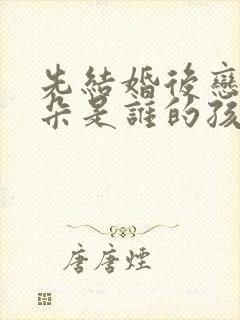 先結婚後戀
朵是誰的孩
唐唐煙